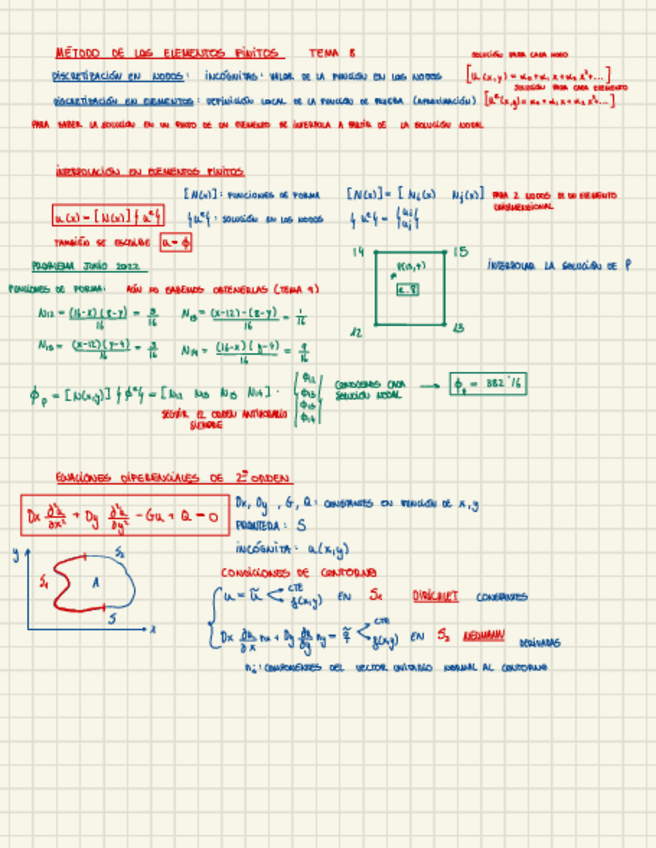 MÉTODO DE LOS ELEMENTOS FINITOS TEMA 8
SOLUCIÓN PARA CADA NODO
DISCRETIZACIÓN EN NODOS: INCÓGNITAS: VALOR DE LA FUNCIÓN EN LOS NODOS [u(x,y) = α₀+α₁x+α₂x²+...]
SOLUCIÓN PARA CADA ELEMENTO
DISCRETIZACIÓN EN ELEMENTOS: DEFINICIÓN LOCAL DE LA FUNCIÓN DE PRUEBA (APROXIMACIÓN) [uᵉ(x,y) = α₀+α₁x+α₂x²...]
PARA SABER LA SOLUCIÓN EN UN PUNTO DE UN ELEMENTO SE INTERPOLA A PARTIR DE LA SOLUCIÓN NODAL
INTERPOLACIÓN EN ELEMENTOS FINITOS
[N(x)]: FUNCIONES DE FORMA [N(x)] = [Ni(x) Nj(x)] PARA 2 NODOS DE UN ELEMENTO UNIDIMENSIONAL
u(x) = [N(x)]{uᵉ} {uᵉ}: SOLUCIÓN EN LOS NODOS {uᵉ} = {ui uj}
TAMBIÉN SE ESCRIBE u = ϕ
PROBLEMA JUNIO 2022
14 15
P(13,7)
e.8
12 13
INTERPOLAR LA SOLUCIÓN DE P
FUNCIONES DE FORMA: AÚN NO SABEMOS OBTENERLAS (TEMA 9)
N12 = (16-x)(8-y)/16 = 3/16 N13 = (x-12)-(8-y)/16 = 1/16
N15 = (x-12)(y-4)/16 = 3/16 N14 = (16-x)(y-4)/16 = 9/16
ϕp = [N(x,y)]{ϕᵉ} = [N12 N13 N15 N14] · {ϕ12 ϕ13 ϕ15 ϕ14} CONOCEMOS CADA SOLUCIÓN NODAL → ϕp = 382'16
SEGUIR EL ORDEN ANTIHORARIO SIEMPRE
ECUACIONES DIFERENCIALES DE 2º ORDEN
Dx ∂²u/∂x² + Dy ∂²u/∂y² - Gu + Q = 0
Dx, Dy, G, Q: CONSTANTES EN FUNCIÓN DE x,y
FRONTERA: S
INCÓGNITA: u(x,y)
y S₁ A S₂ S x
CONDICIONES DE CONTORNO
u = ũ < CTE f(x,y) EN S₁ DIRICHLET CONSTANTES
Dx ∂u/∂x nx + Dy ∂u/∂y ny = q̃ < CTE f(x,y) EN S₂ NEUMANN DERIVADAS
ni: COMPONENTES DEL VECTOR UNITARIO NORMAL AL CONTORNO